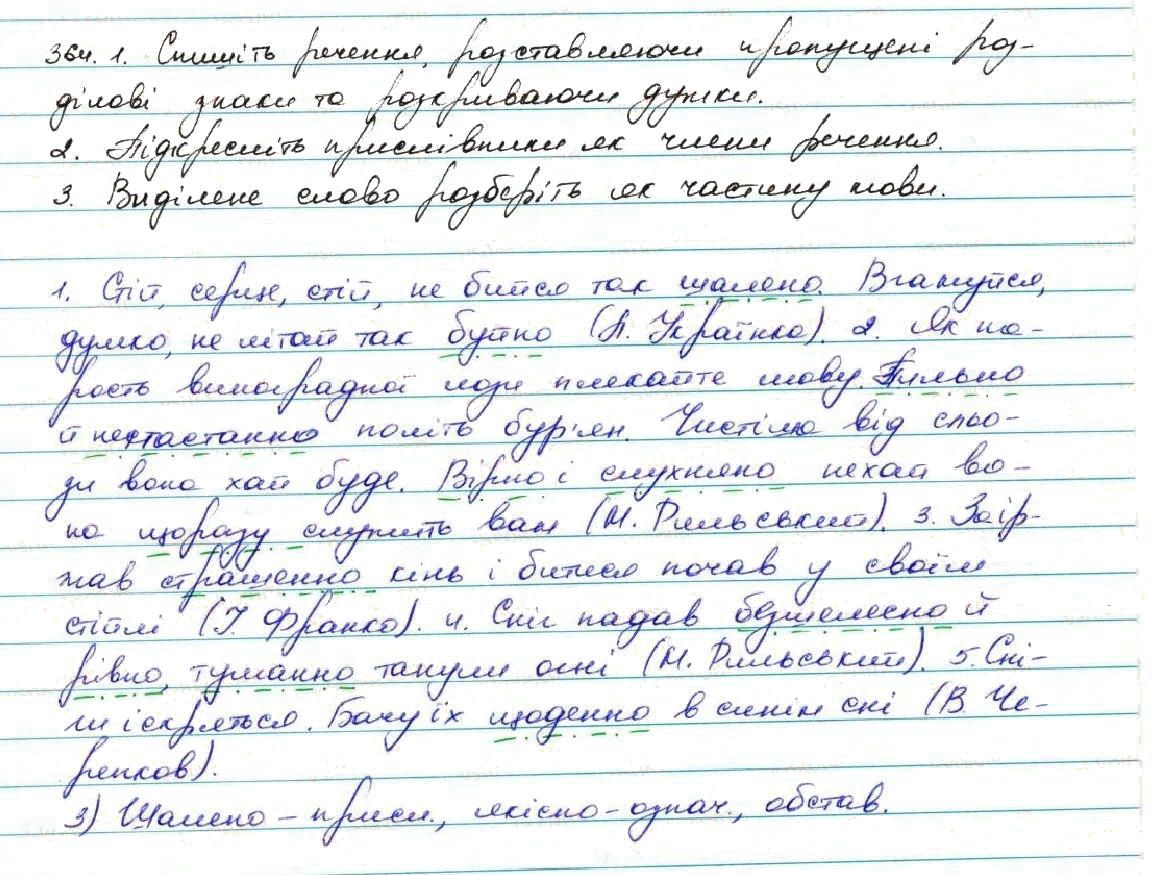 364. 1. Спишіть речення, розставляючи пропущені роз-
ділові знаки та розкриваючи дужки.
2. Підкресліть прислівники як члени речення.
3. Виділене слово розберіть як частину мови.
1. Стій, серце, стій, не бийся так шалено. Вгамуйся,
думко, не літай так буйно (Л. Українка). 2. Як па-
рость виноградної лози плекайте мову. Пильно
й ненастанно політь бур'ян. Чистіша від сльо-
зи вона хай буде. Вірно і слухняно нехай во-
на щоразу служить вам (М. Рильський). 3. Заір-
жав страшенно кінь і битися почав у своїм
стійлі (І. Франко). 4. Сніг падав безшелесно й
рівно, туманно танули огні (М. Рильський). 5. Сні-
ги іскряться. Бачу їх щоденно в синім сні (В. Че-
репков).
3) Шалено – присл., якісно-означ., обстав.